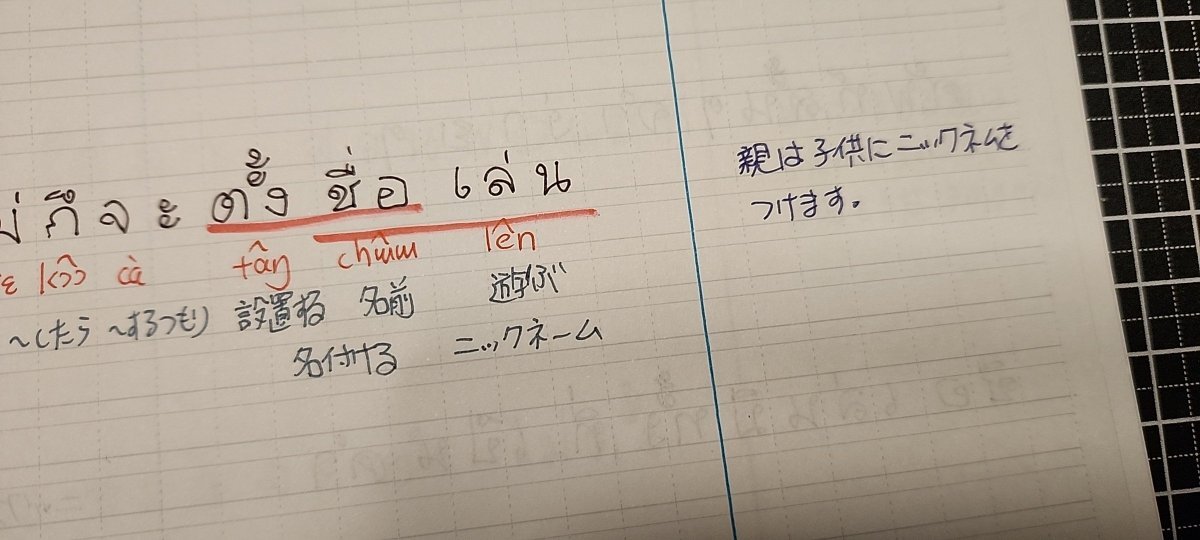 ก็จะตั้งชื่อเล่น
kɔ̂ɔ cà tâŋ chʉ̂ʉʉ lên
〜したら 〜するつもり 設置する 名前 遊ぶ
名付ける ニックネーム
親は子供にニックネムを
つけます。